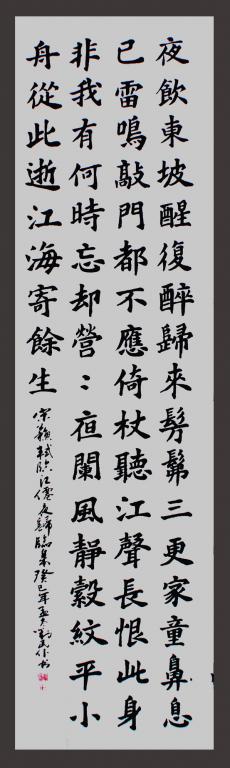 夜飲東坡醒復醉歸來髣髴三更家童鼻息
已雷鳴敲門都不應倚杖聽江聲長恨此身
非我有何時忘却營〻亱闌風靜縠紋平小
舟從此逝江海寄餘生
宋蘇軾臨江仙夜歸臨皋癸巳年孟夏書